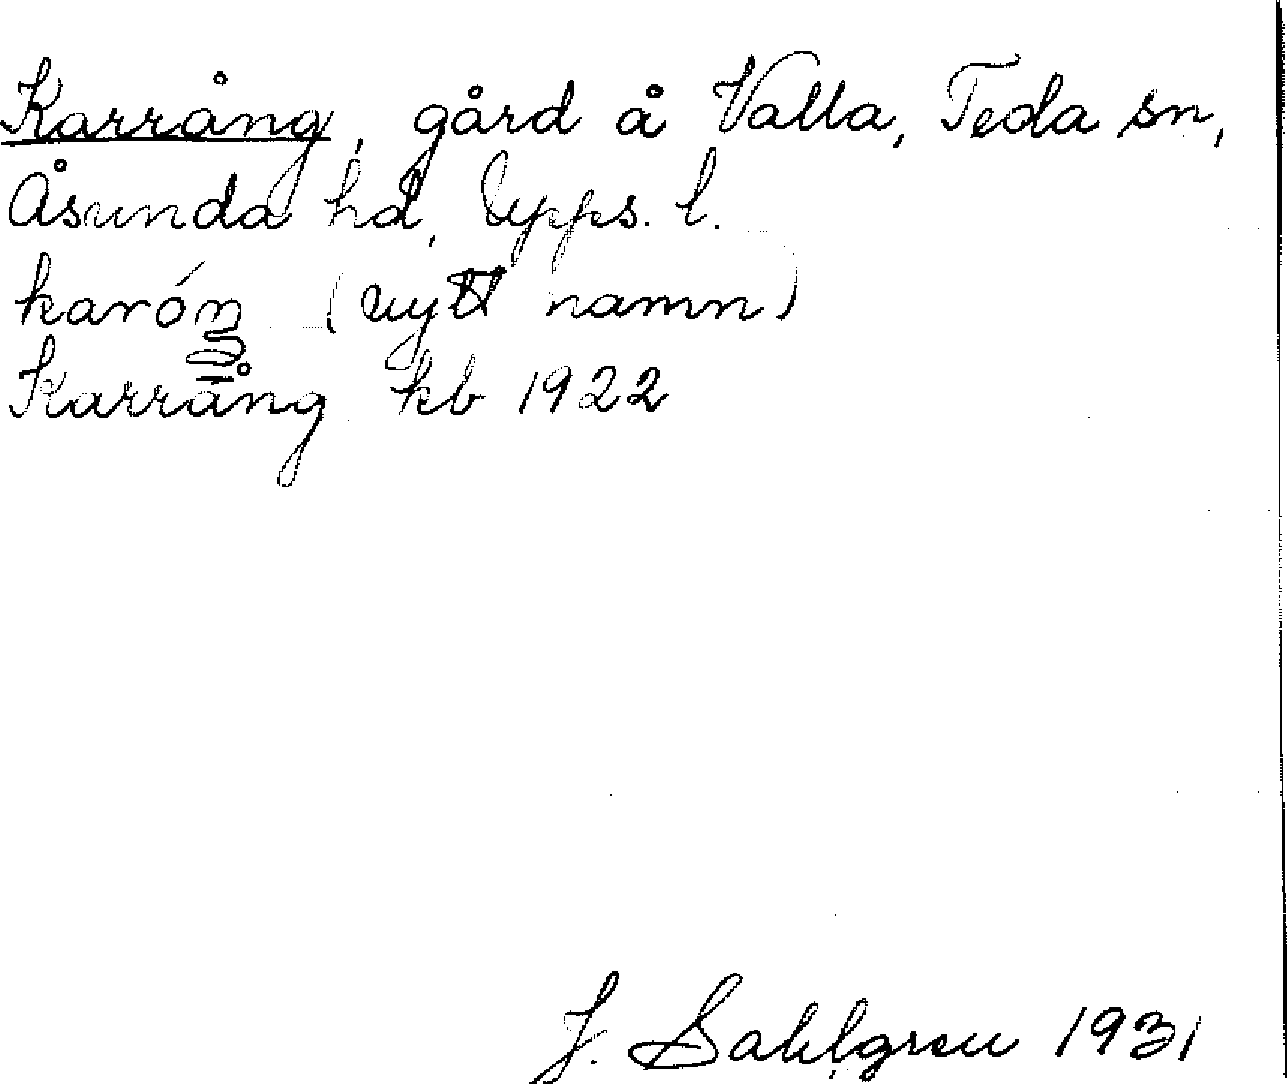 Karrång, gård å Valla, Teda sn,
Åsunda hd, Upps. l.
karóŋ (nytt namn)
Karrång kb 1922
J. Sahlgren 1931